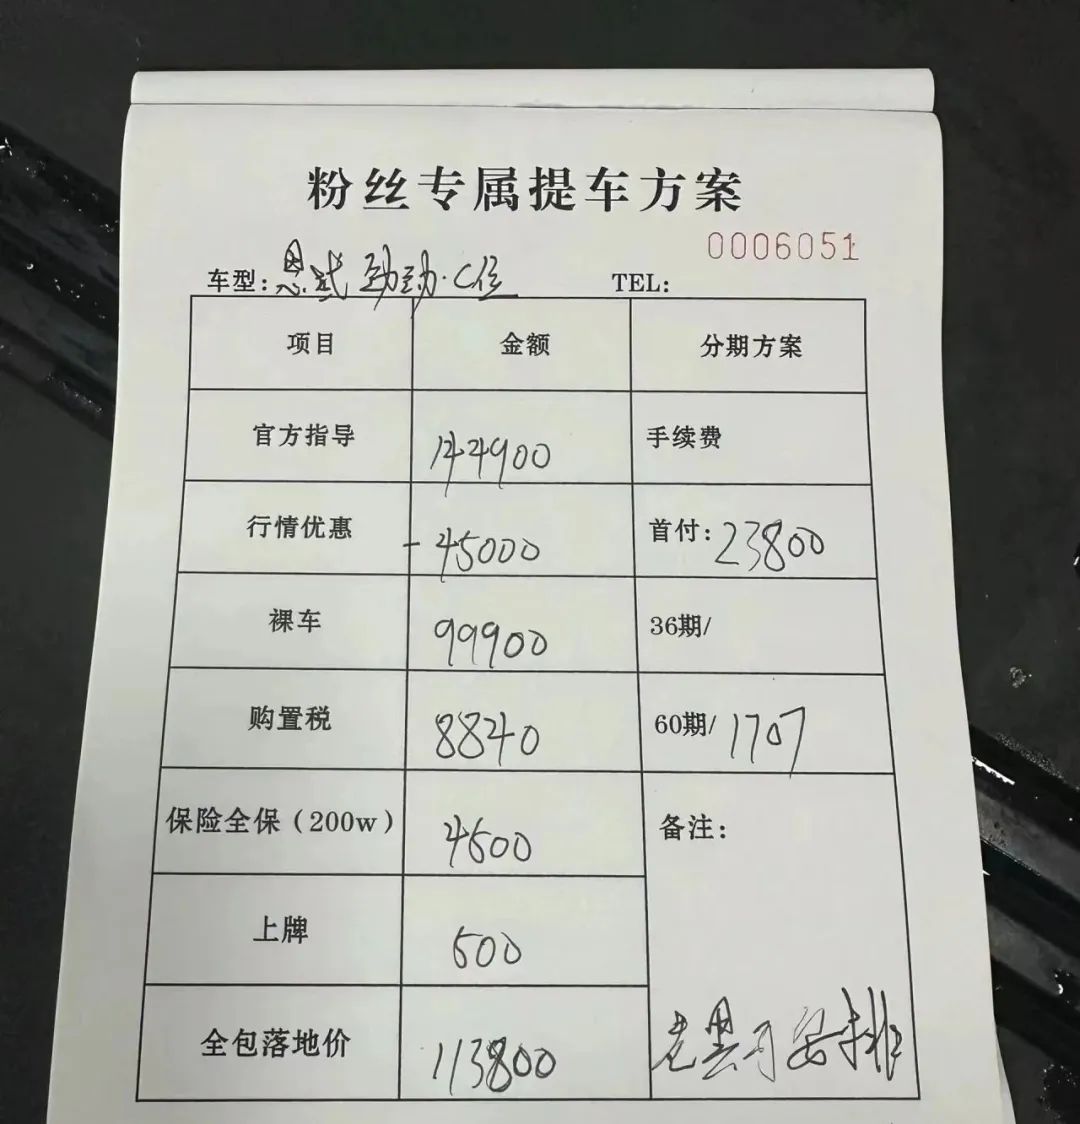 粉丝专属提车方案
0006051
车型：思域 劲动·C位 TEL：
项目 金额 分期方案
官方指导 144900 手续费
行情优惠 -45000 首付：23800
裸车 99900 36期/
购置税 8840 60期/1707
保险全保（200w） 4500 备注：
上牌 500
全包落地价 113800 可安排